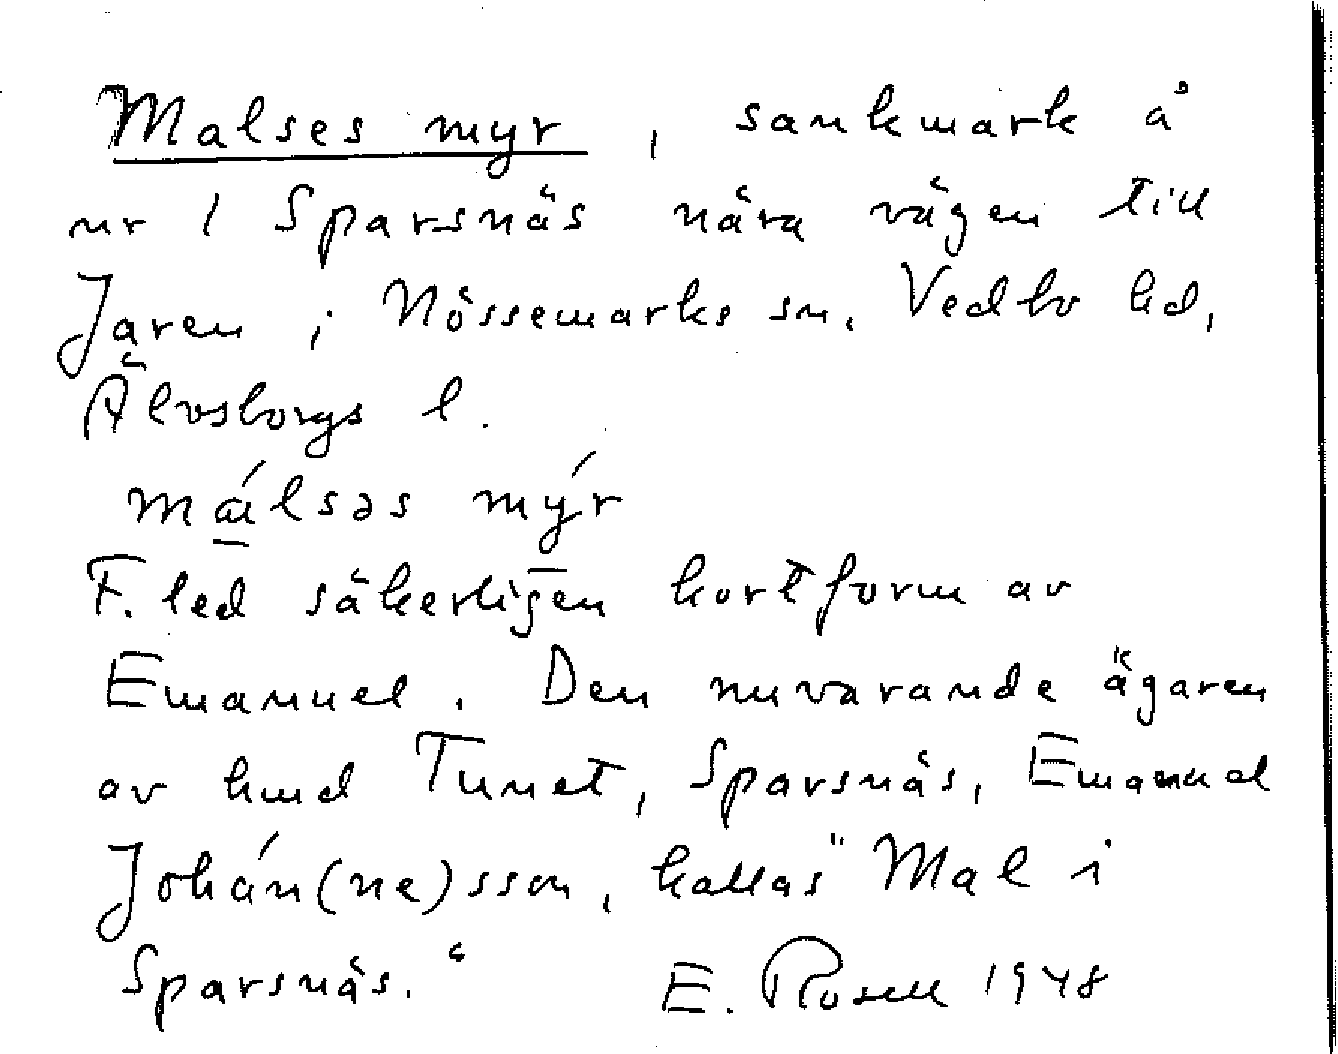 Malses myr, sankmark å
nr 1 Sparsnäs nära vägen till
Jaren i Nössemarks sn. Vedbo hd,
Älvsborgs l.
má̱lsəs mý̱r
F. led säkerligen kortform av
Emanuel. Den nuvarande ägaren
av hmd Tunet, Sparsnäs, Emanuel
Johán(ne)sson, kallas "Mal i
Sparsnäs."     E. Rosell 1948